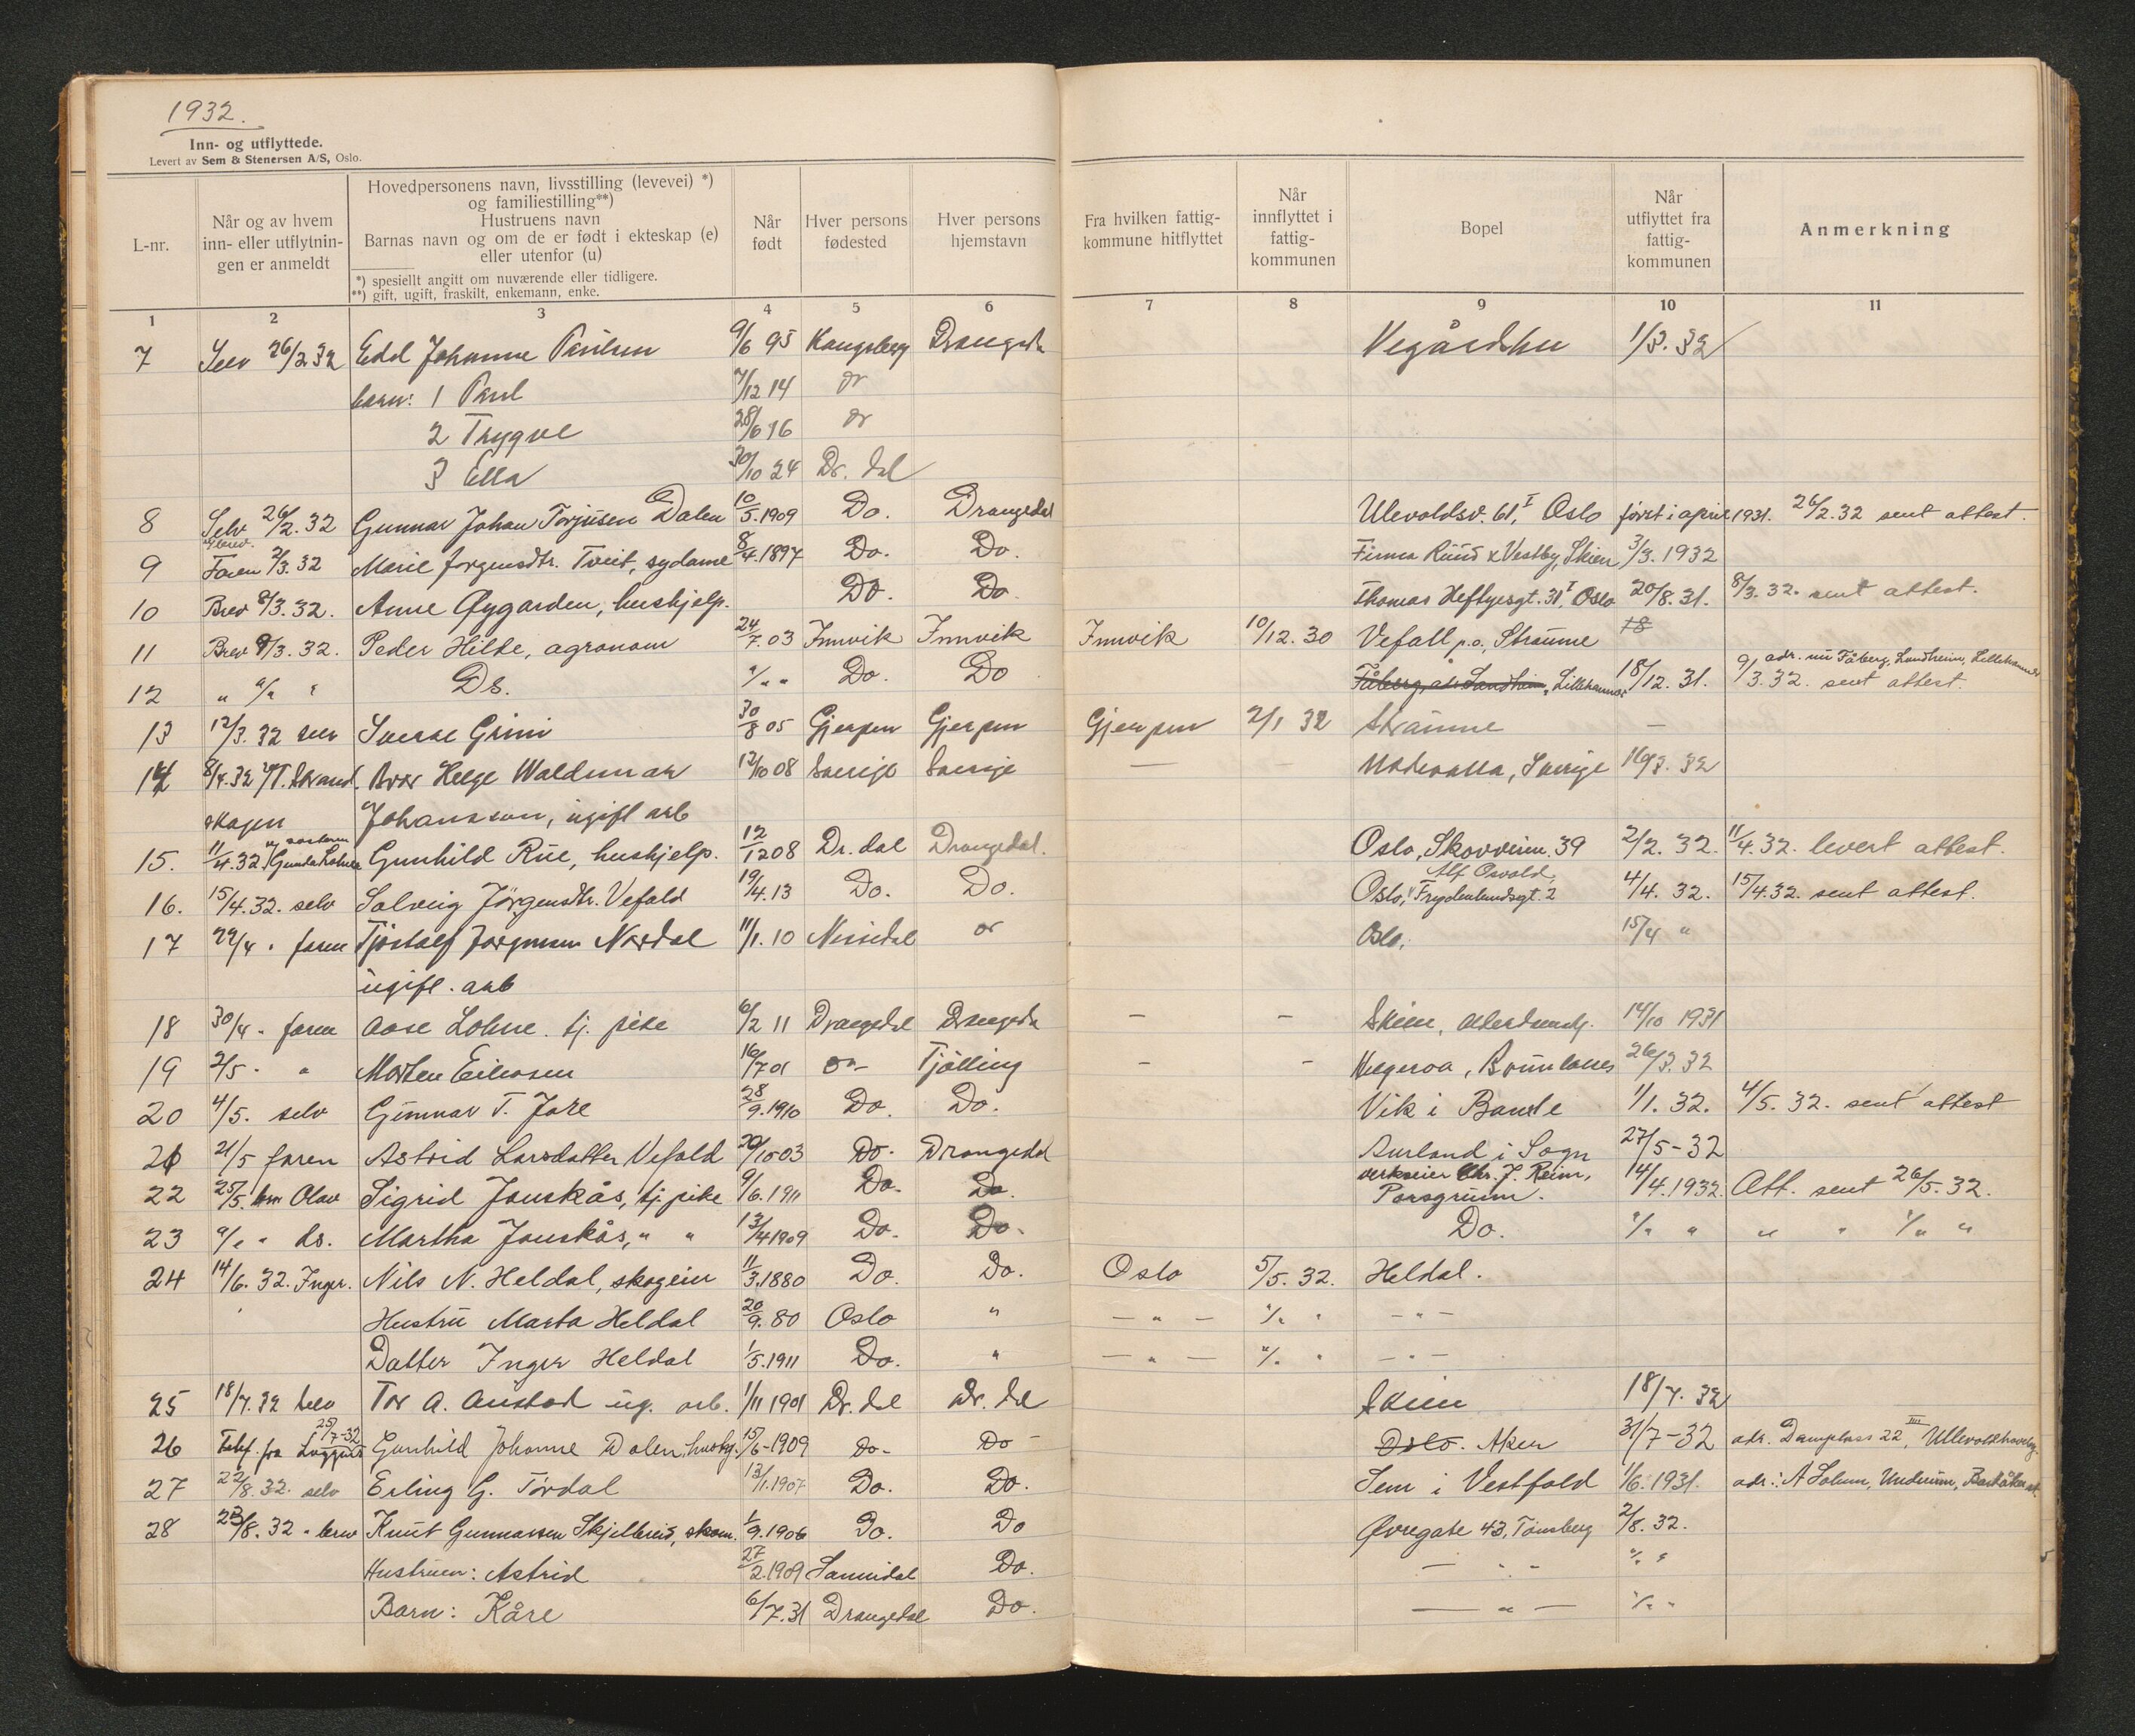 1932.
Inn- og utflyttede.
Levert av Sem & Stenersen A/S, Oslo.
L-nr.
Når og av hvem inn- eller utflytnin- gen er anmeldt
Hovedpersonens navn, livsstilling (levevei) *)
og familiestilling**)
Hustruens navn
Barnas navn og om de er født i ekteskap (e)
eller utenfor (u)
*) spesiellt angitt om nuværende eller tidligere.
**) gift, ugift, fraskilt, enkemann, enke.
Når født
Hver persons fødested
Hver persons hjemstavn
Fra hvilken fattig- kommune hitflyttet
Når innflyttet i fattig- kommunen
Bopel
Når utflyttet fra fattig- kommunen
Anmerkning
1 2 3 4 5 6 7 8 9 10 11
7 Selv 26/2 32 Edel Johanne Paulsen 9/6 95 Kongsberg Drangedal Vegårdshei 1/3. 32
barn: 1 Paul 7/12 14 do
2 Trygve 28/6 16 do
3 Ella 30/10 24 Dr. dal
8 Selv 26/2. 32 Gunnar Johan Torjusen Dalen 10/5.1909 Do. Drangedal Ulevoldsv. 61, I Oslo først i april 1931. 26/2.32 sent attest.
9 brev. Faren 2/3. 32 Marie Jorgensdtr. Tveit, sydame 8/4.1897 Do. Do. Firma Ruud & Vestby, Skien 3/3. 1932
10 Brev 8/3. 32. Anne Øygarden, hushjelp. Do. Do Thomas Heftyesgt. 31 I, Oslo 20/8. 31. 8/3. 32. sent attest.
11 Brev 9/3. 32. Peder Hilde, agronom 24/7.03 Innvik Innvik Innvik 10/12. 30 Vefall p.o. Straume 18
12 " "/" " Ds. "/" " Do. Do Fåberg, adr. Landheim, Lillehammer 18/12. 31. 9/3. 32. sent attest. adr. nu Fåberg, Landheim, Lillehammer
13 12/3. 32 selv Sverre Grini 30/8 05 Gjerpen Gjerpen Gjerpen 2/1 32 Straume —
14 8/4. 32 T. Strand. Bror Helge Waldemar 12/10 08 Sverige Sverige — — Uddevalla, Sverige 16/3. 32
skogen Johansson, ugift arb
15. 11/4. 32 Gunda Lohne Gunhild Rue, hushjelp. 12/12 08 Dr. dal Drangedal. Oslo, Skovveien. 39 2/2. 32. 11/4. 32. levert attest.
16. 15/4. 32. selv Solveig Jörgensdtr. Vefald 19/4. 13 Do. Do. Alf Osvold Oslo, Frydenlundsgt. 2 4/4. 32. 15/4.32. sent attest.
17 29/4 " faren Tjöstolf Jorgensen Nordal 11/1. 10 Nissedal do Oslo, 15/4 "
ugift. arb
18 30/4 - faren Aase Lohne. tj. pike 6/2 11 Drangedal Drangedal — — Skien, 14/10 1931
19 2/5 - " Morten Eriksen 16/7 01 do- Tjölling — — Helgeroa, Brunlanes 26/3. 32
20 4/5. selv Gunnar T. Jore 28/9. 1910 Do. Do. Vik i Bamle 1/1. 32. 4/5. 32. sent attest
21 21/5 faren Astrid Larsdatter Vefald 20/10 03 Do. Drangedal Aurland i Sogn 27/5 - 32
22 25/5. Olav Sigrid Jonskås, tj. pike 9/6. 1911 Do. Do. verkseier Chr. J. Reim, Porsgrunn. 14/4.1932. Att. sent 26/5. 32.
23 "/" " ds. Martha Jonskås, " " 13/4 1909 Do. Do. Do. "/" " " " "/" "
24 14/6. 32. Inger. Nils N. Heldal, skogeier 11/3. 1880 Do. Do. Oslo 5/5. 32. Heldal.
Hustru Marta Heldal 20/9. 80 Oslo " — " — "/" " - " -
Datter Inger Heldal 1/5. 1911 Do. " — " — "/" " - " -
25 18/7. 32 selv Tor A. Austad ug. arb. 1/11 1901 Dr. dal Dr. dal Skien 18/7. 32
26 Telef. fra 25/7-32 Gunhild Johanne Dalen, 15/6-1909 do- Do - Oslo. Aker 31/7-32 adr. Damplass 22, III
27 22/8. 32. selv Erling G. Tördal 13/1.1907 Do. Do. Sem i Vestfold 1/6. 1931. adr.: A Solum, Undrum, Barkåker st.
28 23/8. 32 - brev Knut Gunnarsen Skjelbreid, skom. 1/9. 1906 Do. Do Øvregate 43, Tønsberg 2/8. 32.
Hustruen: Astrid 27/2. 1909 Sannidal Do. — " - "/" "
Barn: Kåre 6/7. 31 Drangedal Do. — " — "/" "